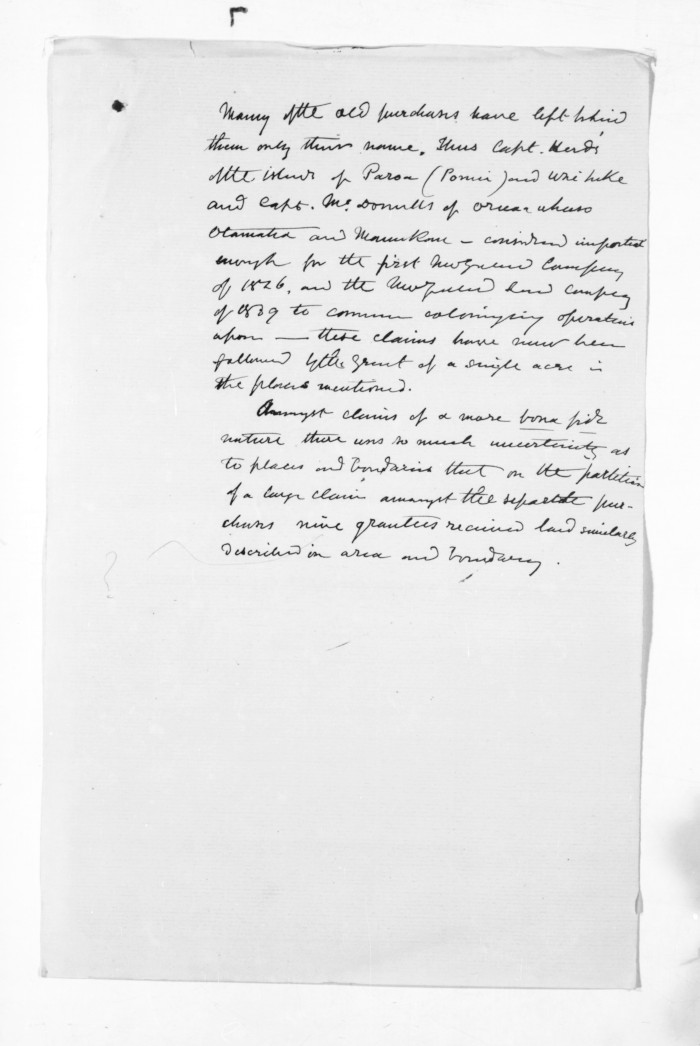 Many of the old purchases have left behind
them only their name. Thus Capt. Herd's
of the islands of Paroa (Ponui) and Waiheke
and Capt. McDonnell's of
and — considered important
enough for the first New Zealand Company
of 1826, and the New Zealand Land Company
of 1839 to commence colonizing operations
upon — these claims have never been
followed by the grant of a single acre in
the places mentioned.
Amongst claims of a more bona fide
nature there was so much uncertainty as
to places and boundaries that on the partition
of a large claim amongst the separate pur-
chasers nine grantees received land similarly
described in area and boundary.